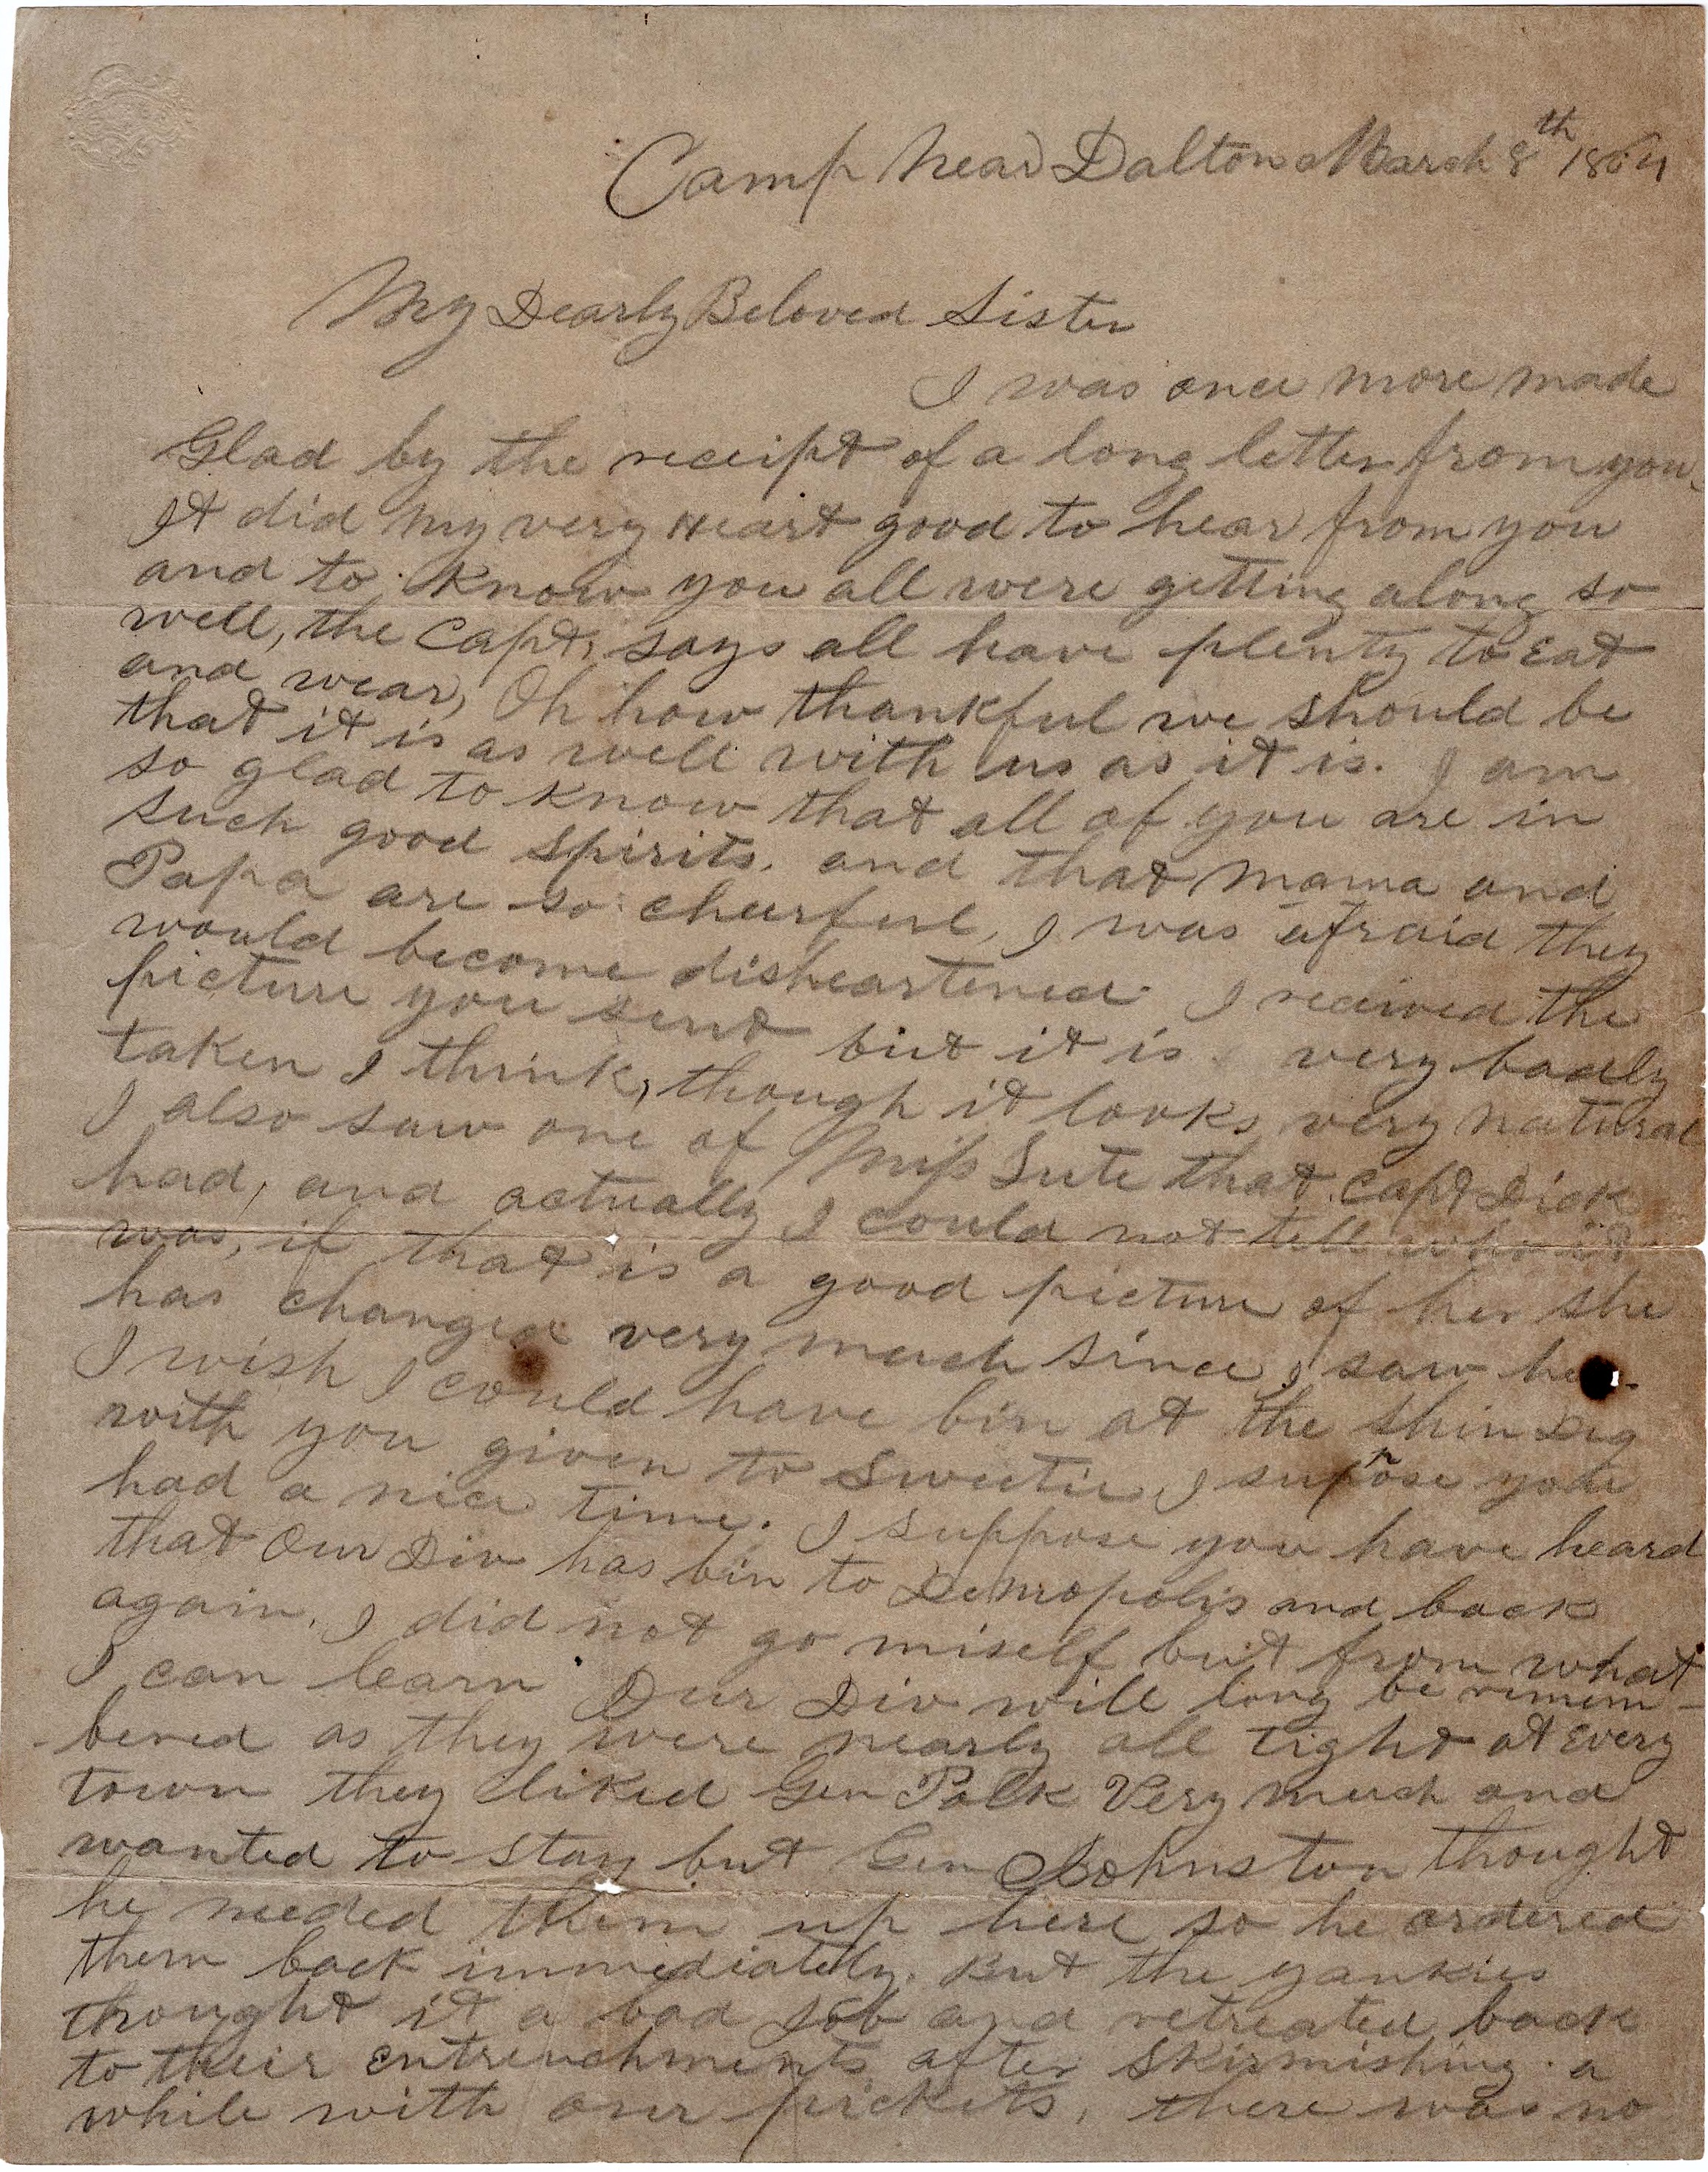 Camp near Dalton March 8th 1864
My Dearly Beloved Sister
I was once more made
Glad by the receipt of a long letter from you.
It did my very Heart good to hear from you
and to know you all were getting along so
well, the Capt, says all have plenty to Eat
and wear, Oh how thankful we should be
that it is as well with us as it is. I am
so glad to know that all of you are in
such good spirits. and that mama and
Papa are so cheerful, I was afraid they
would become disheartened. I received the
picture you sent but it is very badly
taken I think, though it looks very natural
I also saw one of Miss Sute that Capt Dick
had, and actually I could not tell who it
was, if that is a good picture of her she
has changed very much since I saw he
I wish I could have bin at the shin dig
with you given to Sweetie I supose you
had a nice time. I suppose you have heard
that Our Div has bin to Demopolis and back
again. I did not go miself but from what
I can learn Our Div will long be remem-
-bered as they were nearly all tight at Every
town they liked Gen Polk Very much and
wanted to stay but Gen Johnston thought
he needed them up here so he ordered
them back immediately. But the yankies
thought it a bad job and retreated back
to their entrenchments after skirmishing a
while with our pickets, there was no